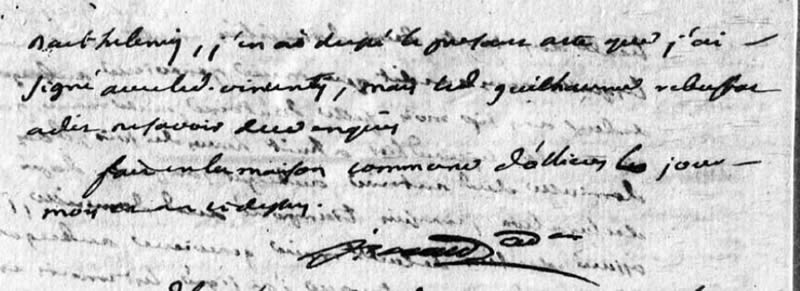 Barthelemy, j'en ai dressé le present acte que j'ai
signé avec led. vincent, mais led. guilhaume rebuffat
a dit ne savoir de ce enquis
fait en la maison commune d'ollieres les jour
mois et an ci dessus.